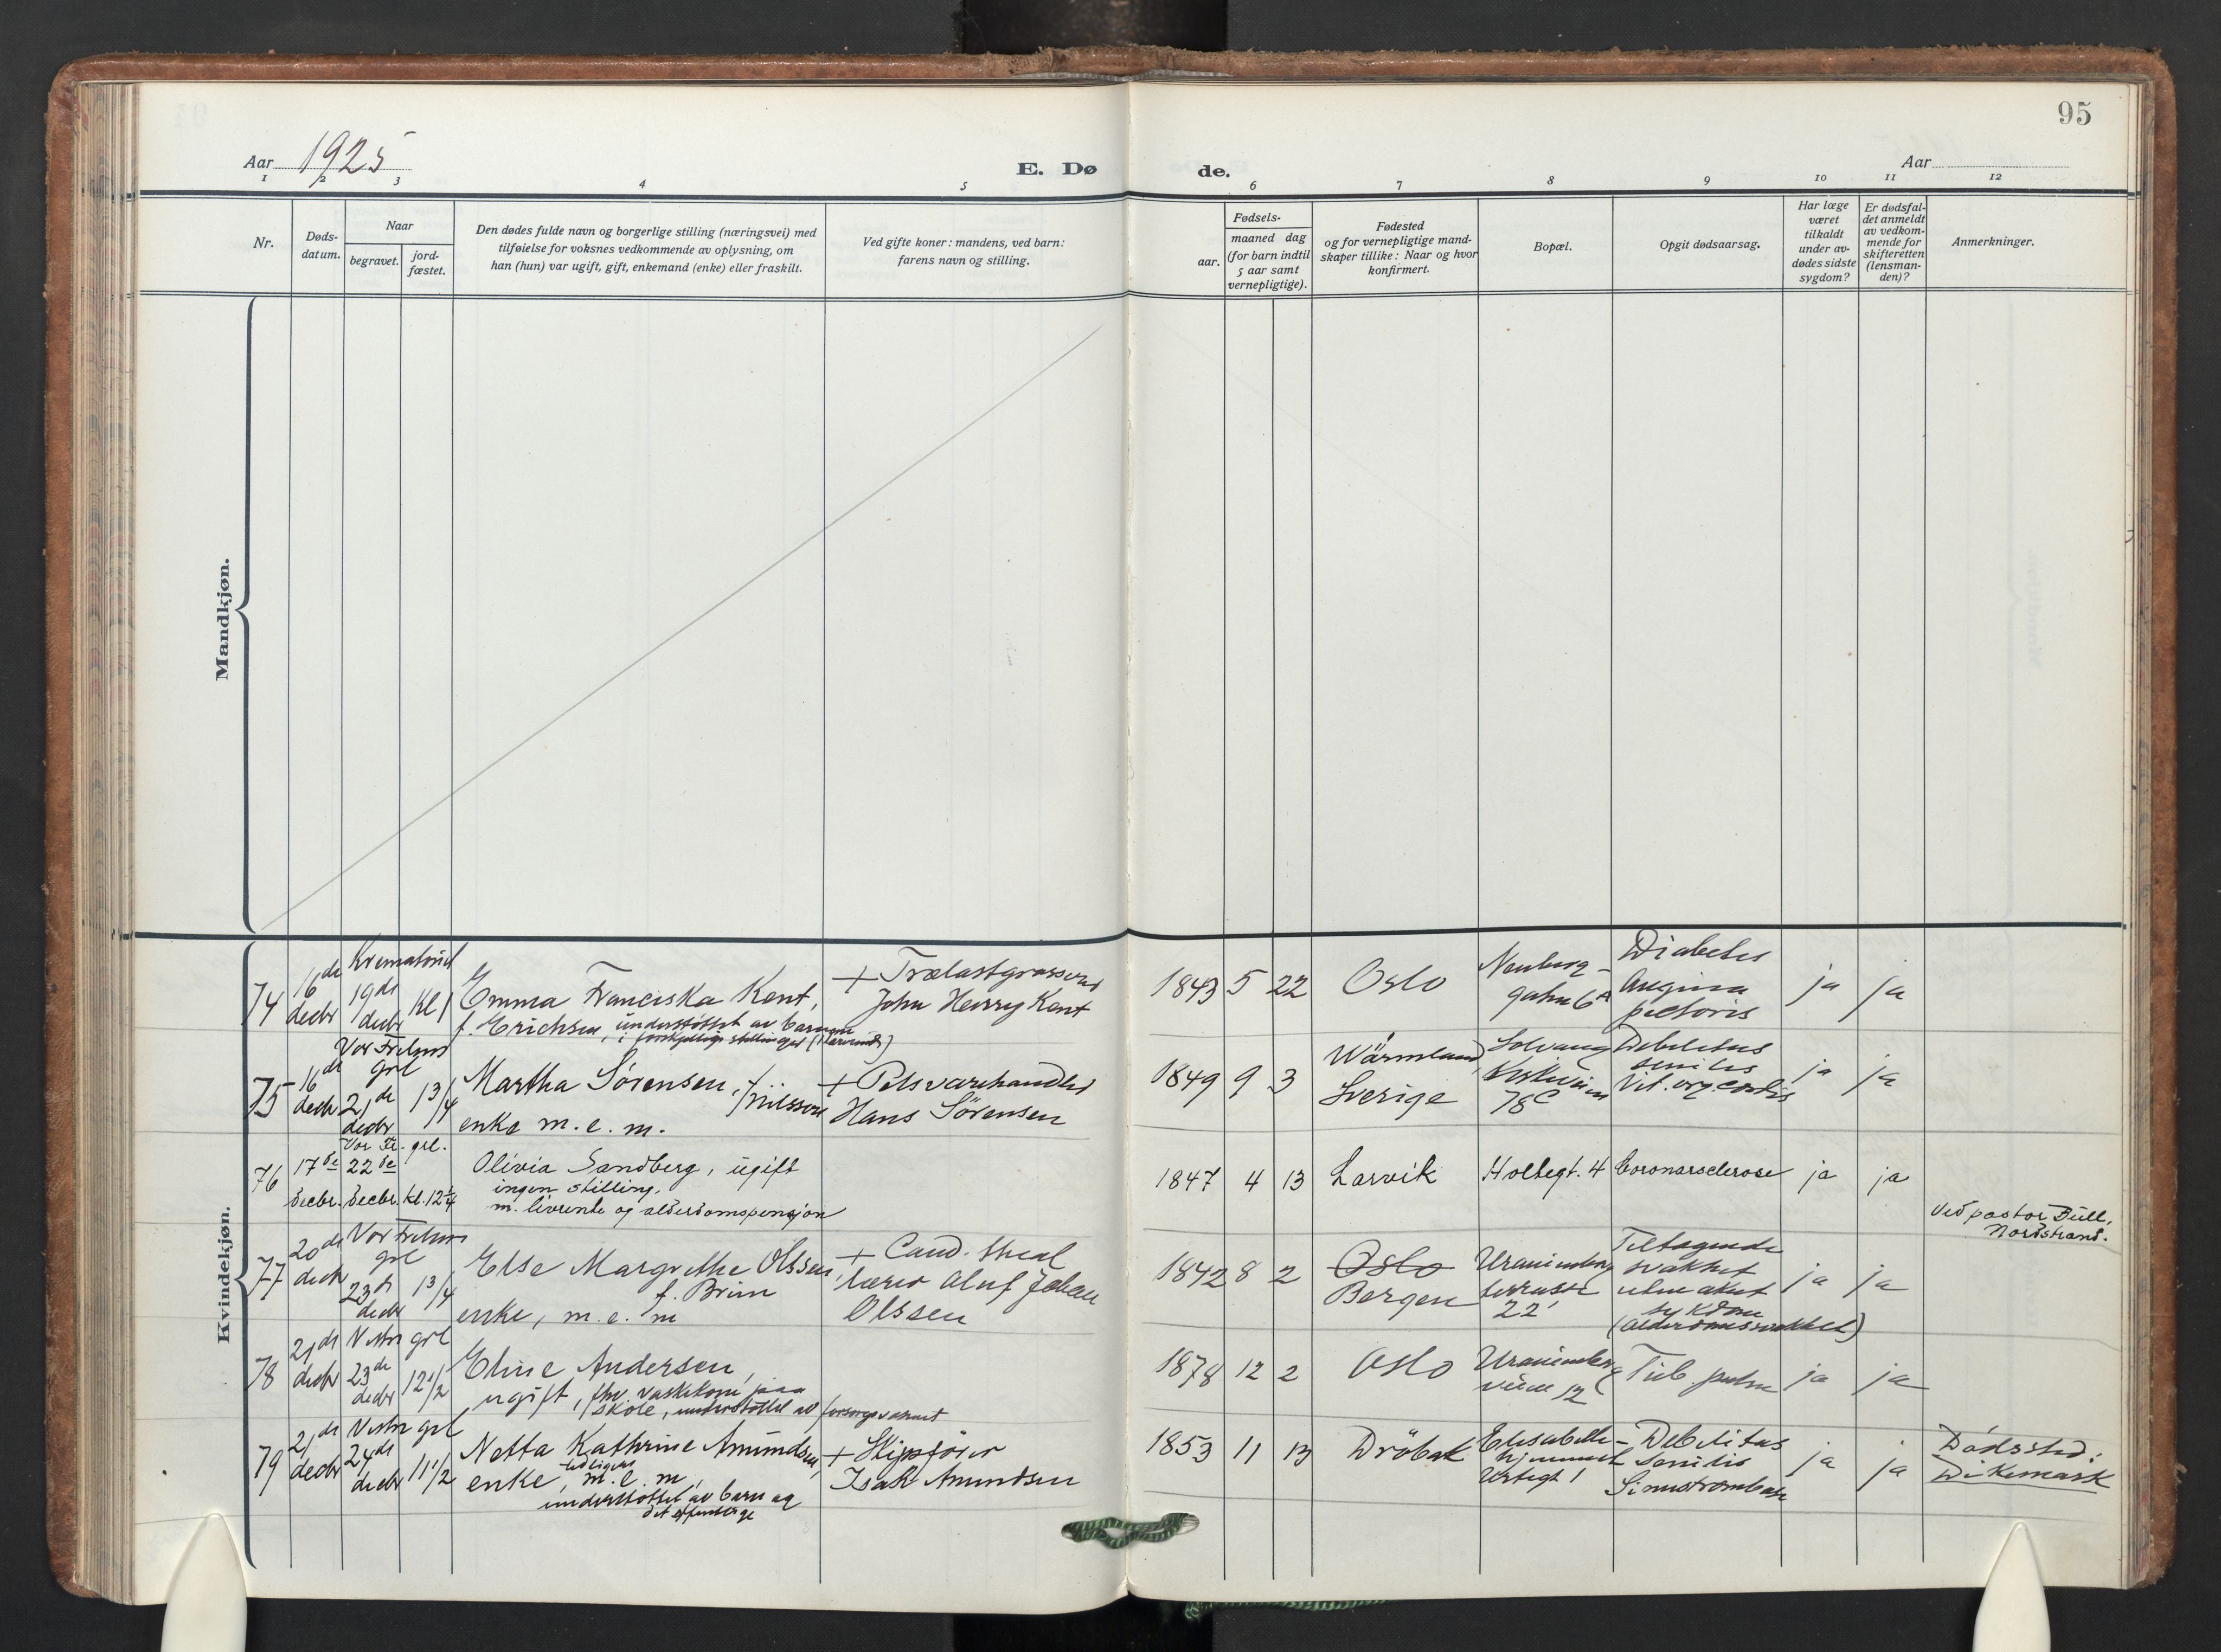 95
Aar 1925
E. Dø
de.
Aar
1 2 3 4 5 6 7 8 9 10 11 12
Nr.
Døds-
datum.
Naar
begravet.
jord-
fæstet.
Den dødes fulde navn og borgerlige stilling (næringsvei) med
tilføielse for voksnes vedkommende av oplysning, om
han (hun) var ugift, gift, enkemand (enke) eller fraskilt.
Ved gifte koner: mandens, ved barn:
farens navn og stilling.
Fødsels-
aar.
maaned dag
(for barn indtil
5 aar samt
vernepligtige).
Fødested
og for vernepligtige mand-
skaper tillike: Naar og hvor
konfirmert.
Bopæl.
Opgit dødsaarsag.
Har læge
været
tilkaldt
under av-
dødes sidste
sygdom?
Er dødsfal-
det anmeldt
av vedkom-
mende for
skifteretten
(lensman-
den)?
Anmerkninger.
Mandkjøn.
Kvindekjøn.
74
16de
decbr
Krematoriet
19de
decbr
kl 1
Emma Franciska Kent,
f. Erichsen, understöttet av barnem
i forskjellige stillinger
+ Trælastgrosserer
John Henry Kent
1843 5 22
Oslo
Neuberg-
gaten 6A
Diabetes
Angina
pectoris
ja
ja
75
16de
decbr
Vor Frelsers
grl
21de
decbr
1 3/4
Martha Sørensen, f. Nilsson
enke m. e. m.
+ Pelsvarehandler
Hans Sörensen
1849 9 3
Wärmland,
Sverige
Solvang
Kirkeveien
78C
Debilitas
senilis
Vit. org. cordis
ja
ja
76
17de
decbr.
Vor Fr. grl.
22de
decbr. kl. 12 1/4
Olivia Sandberg, ugift
ingen stilling.
m. livrente og alderdomspensjon
1847 4 13
Larvik
Holtegt. 4
Coronarsclerose
ja
ja
77
20de
decbr
Vor Frelsers
grl
23de
decbr
1 3/4
Else Margrethe Olssen,
f. Brun
enke, m. e. m
+ Cand. theol
lærer Oluf Johan
Olssen
1842 8 2
Oslo
Bergen
Uranienborg
terrasse
22
Tiltagende
svakhet
uten akut
sykdom
(alderdomssvakhet)
ja
ja
Ved pastor Bull,
Nordstrand.
78
21de
decbr
Vestre grl
23de
decbr
12 1/2
Eline Andersen,
ugift, fhv. vaskekone paa
skole, understöttet av forsorgsvæsenet
1878 12 2
Oslo
Uranienborg
veien 12
Tub. pulm
ja
ja
79
21de
decbr
Vestre grl
24de
decbr
11 1/2
Netta Kathrine Amundsen,
enke, m. e. m,
tidligere
understöttet av barn og
det offentlige
+ Skipsförer
Isak Amundsen
1853 11 13
Dröbak
Elisabeth-
hjemmet
Urtegt 1
Debilitas
senilis
Sinustrombose
ja
ja
Dödssted:
Dikemark